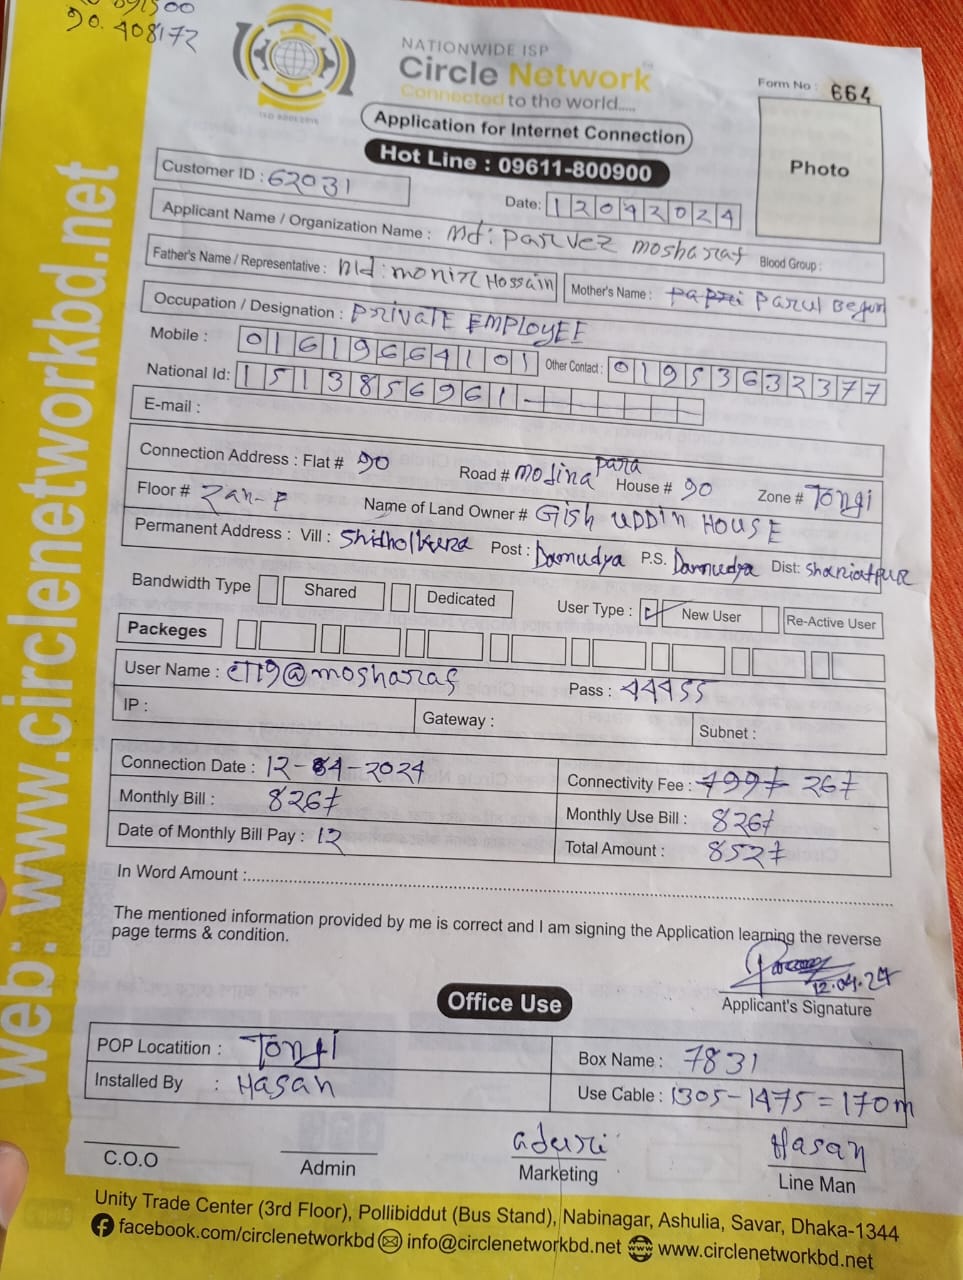 90.408172
NATIONWIDE ISP
Circle Network
Connected to the world.....
Form No : 664
Application for Internet Connection
Hot Line : 09611-800900
Photo
Customer ID : 62031
Date: 12042024
Applicant Name / Organization Name : Md: Parvez mosharaf Blood Group :
Father's Name / Representative : Md: monir Hossain Mother's Name : Parul Begum
Occupation / Designation : PrivatE EMPLOYEE
Mobile : 01619664101 Other Contact : 01953632377
National Id: 1513856961
E-mail :
Connection Address : Flat # 90 Road # Modina para House # 90 Zone # Tongi
Floor # Name of Land Owner # Gish UDDin HOUSE
Permanent Address : Vill : Shidholkura Post : Damudya P.S. Damudya Dist: Shariatpur
Bandwidth Type Shared Dedicated User Type : New User Re-Active User
Packeges
User Name : @mosharaf Pass : 44455
IP : Gateway : Subnet :
Connection Date : 12-04-2024 Connectivity Fee : 26/-
Monthly Bill : 826/- Monthly Use Bill : 826/-
Date of Monthly Bill Pay : 12 Total Amount : 852/-
In Word Amount :
The mentioned information provided by me is correct and I am signing the Application learning the reverse
page terms & condition.
12.04.24
Applicant's Signature
Office Use
POP Locatition : Tongi Box Name : 7831
Installed By : Hasan Use Cable : 1305-1475=170m
C.O.O Admin Marketing Hasan Line Man
Unity Trade Center (3rd Floor), Pollibiddut (Bus Stand), Nabinagar, Ashulia, Savar, Dhaka-1344
facebook.com/circlenetworkbd info@circlenetworkbd.net www.circlenetworkbd.net
web: www.circlenetworkbd.net